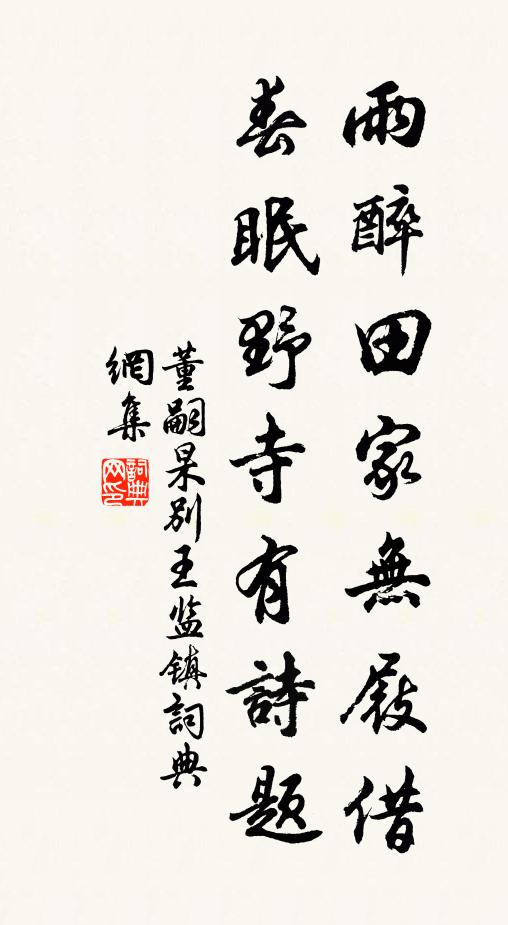 雨醉田家無屐借
春眠野寺有詩題
董嗣杲别王监镇詞典
網集
詞典
网印